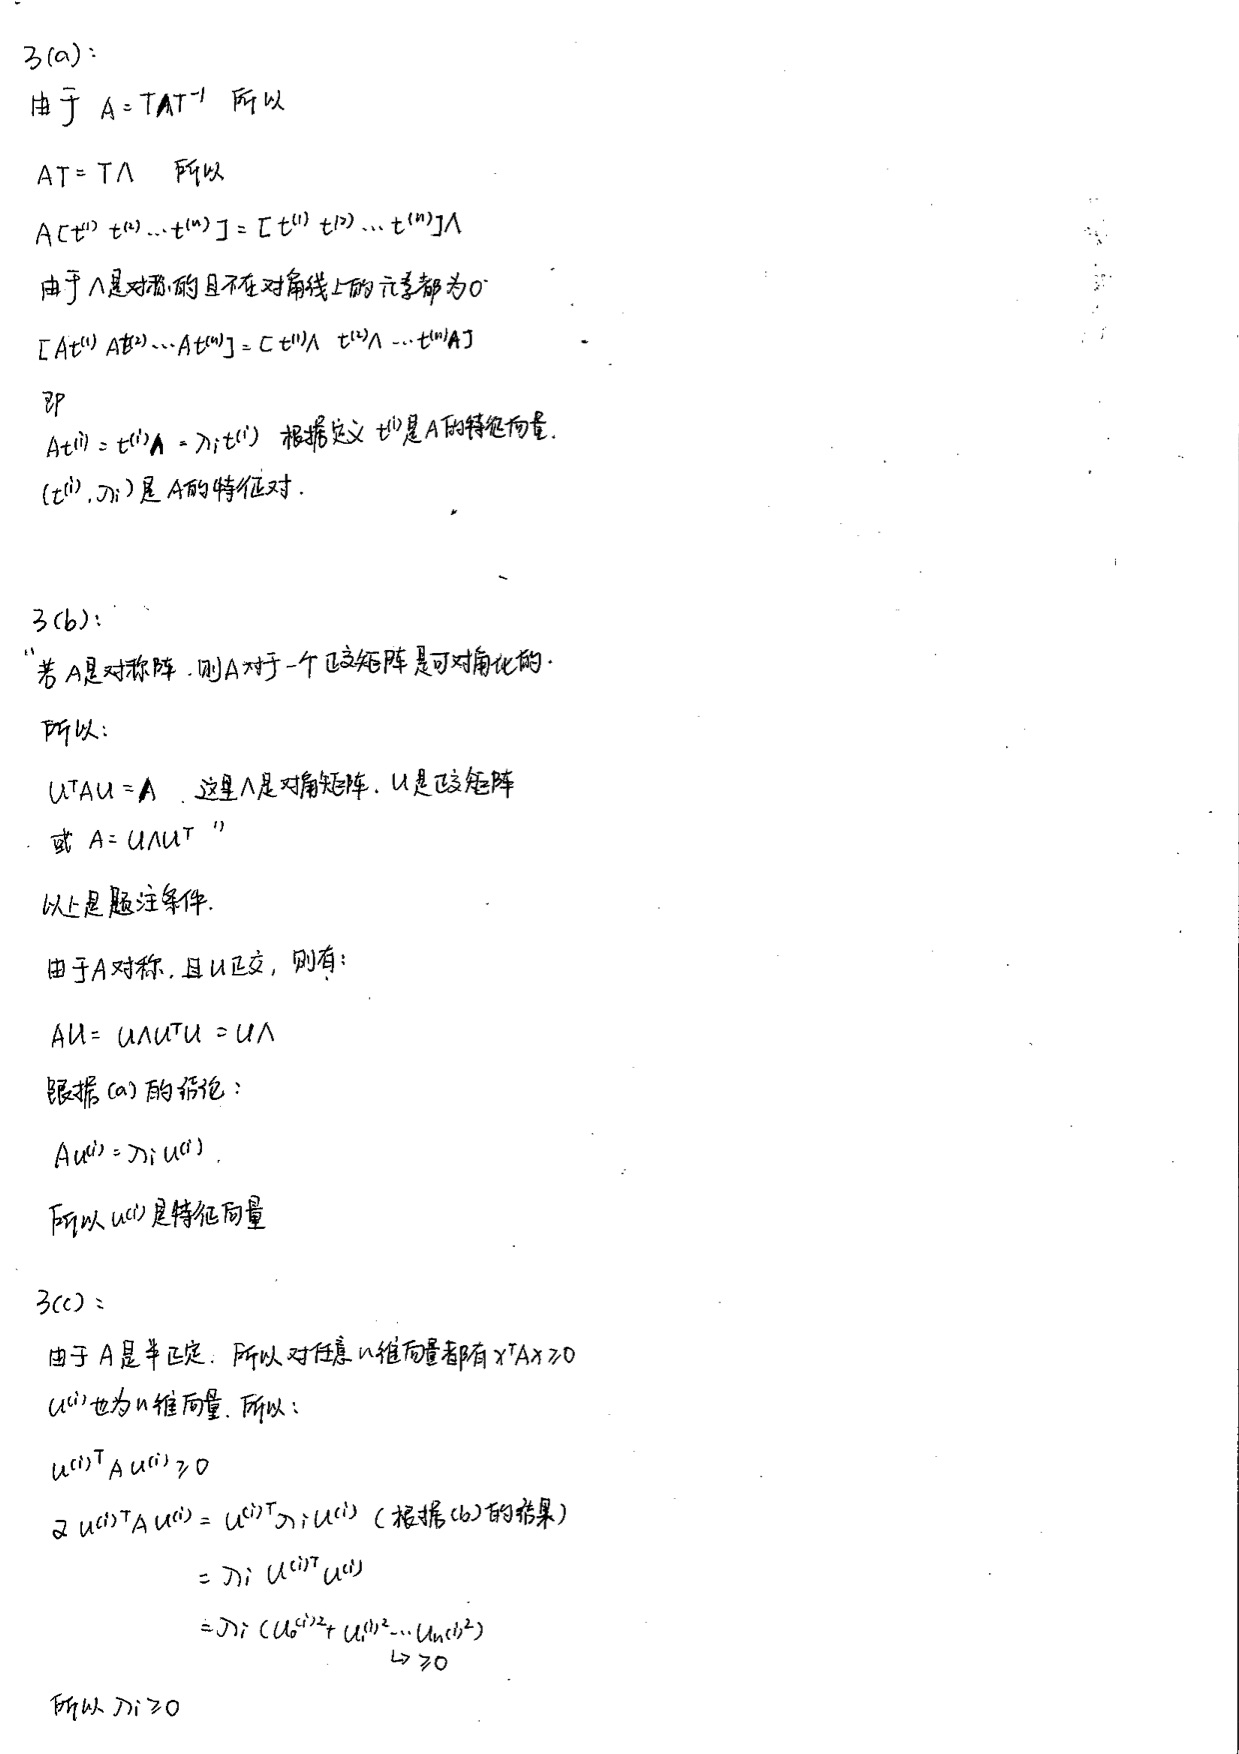 3(a):
由于 A = TΛT⁻¹ 所以
AT = TΛ 所以
A[t⁽¹⁾ t⁽²⁾ … t⁽ⁿ⁾] = [t⁽¹⁾ t⁽²⁾ … t⁽ⁿ⁾]Λ
由于Λ是对称的且不在对角线上的元素都为0
[At⁽¹⁾ At⁽²⁾ … At⁽ⁿ⁾] = [t⁽¹⁾Λ t⁽²⁾Λ … t⁽ⁿ⁾Λ]
即
At⁽ⁱ⁾ = t⁽ⁱ⁾Λ = λi t⁽ⁱ⁾ 根据定义 t⁽ⁱ⁾是A的特征向量.
(t⁽ⁱ⁾, λi) 是 A的特征对.
3(b):
"若A是对称阵,则A对于一个正交矩阵是可对角化的.
所以:
UᵀAU = Λ . 这里Λ是对角矩阵. U是正交矩阵
或 A = UΛUᵀ "
以上是题注条件.
由于A对称,且U正交, 则有:
AU = UΛUᵀU = UΛ
跟据(a)的结论:
Au⁽ⁱ⁾ = λi u⁽ⁱ⁾.
所以u⁽ⁱ⁾是特征向量
3(c):
由于A是半正定. 所以对任意n维向量都有xᵀAx≥0
u⁽ⁱ⁾也为n维向量. 所以:
u⁽ⁱ⁾ᵀAu⁽ⁱ⁾ ≥ 0
又 u⁽ⁱ⁾ᵀAu⁽ⁱ⁾ = u⁽ⁱ⁾ᵀλi u⁽ⁱ⁾ (根据(b)的结果)
= λi u⁽ⁱ⁾ᵀu⁽ⁱ⁾
= λi (u₀⁽ⁱ⁾² + u₁⁽ⁱ⁾² … uₙ⁽ⁱ⁾²)
↳ ≥0
所以 λi ≥ 0